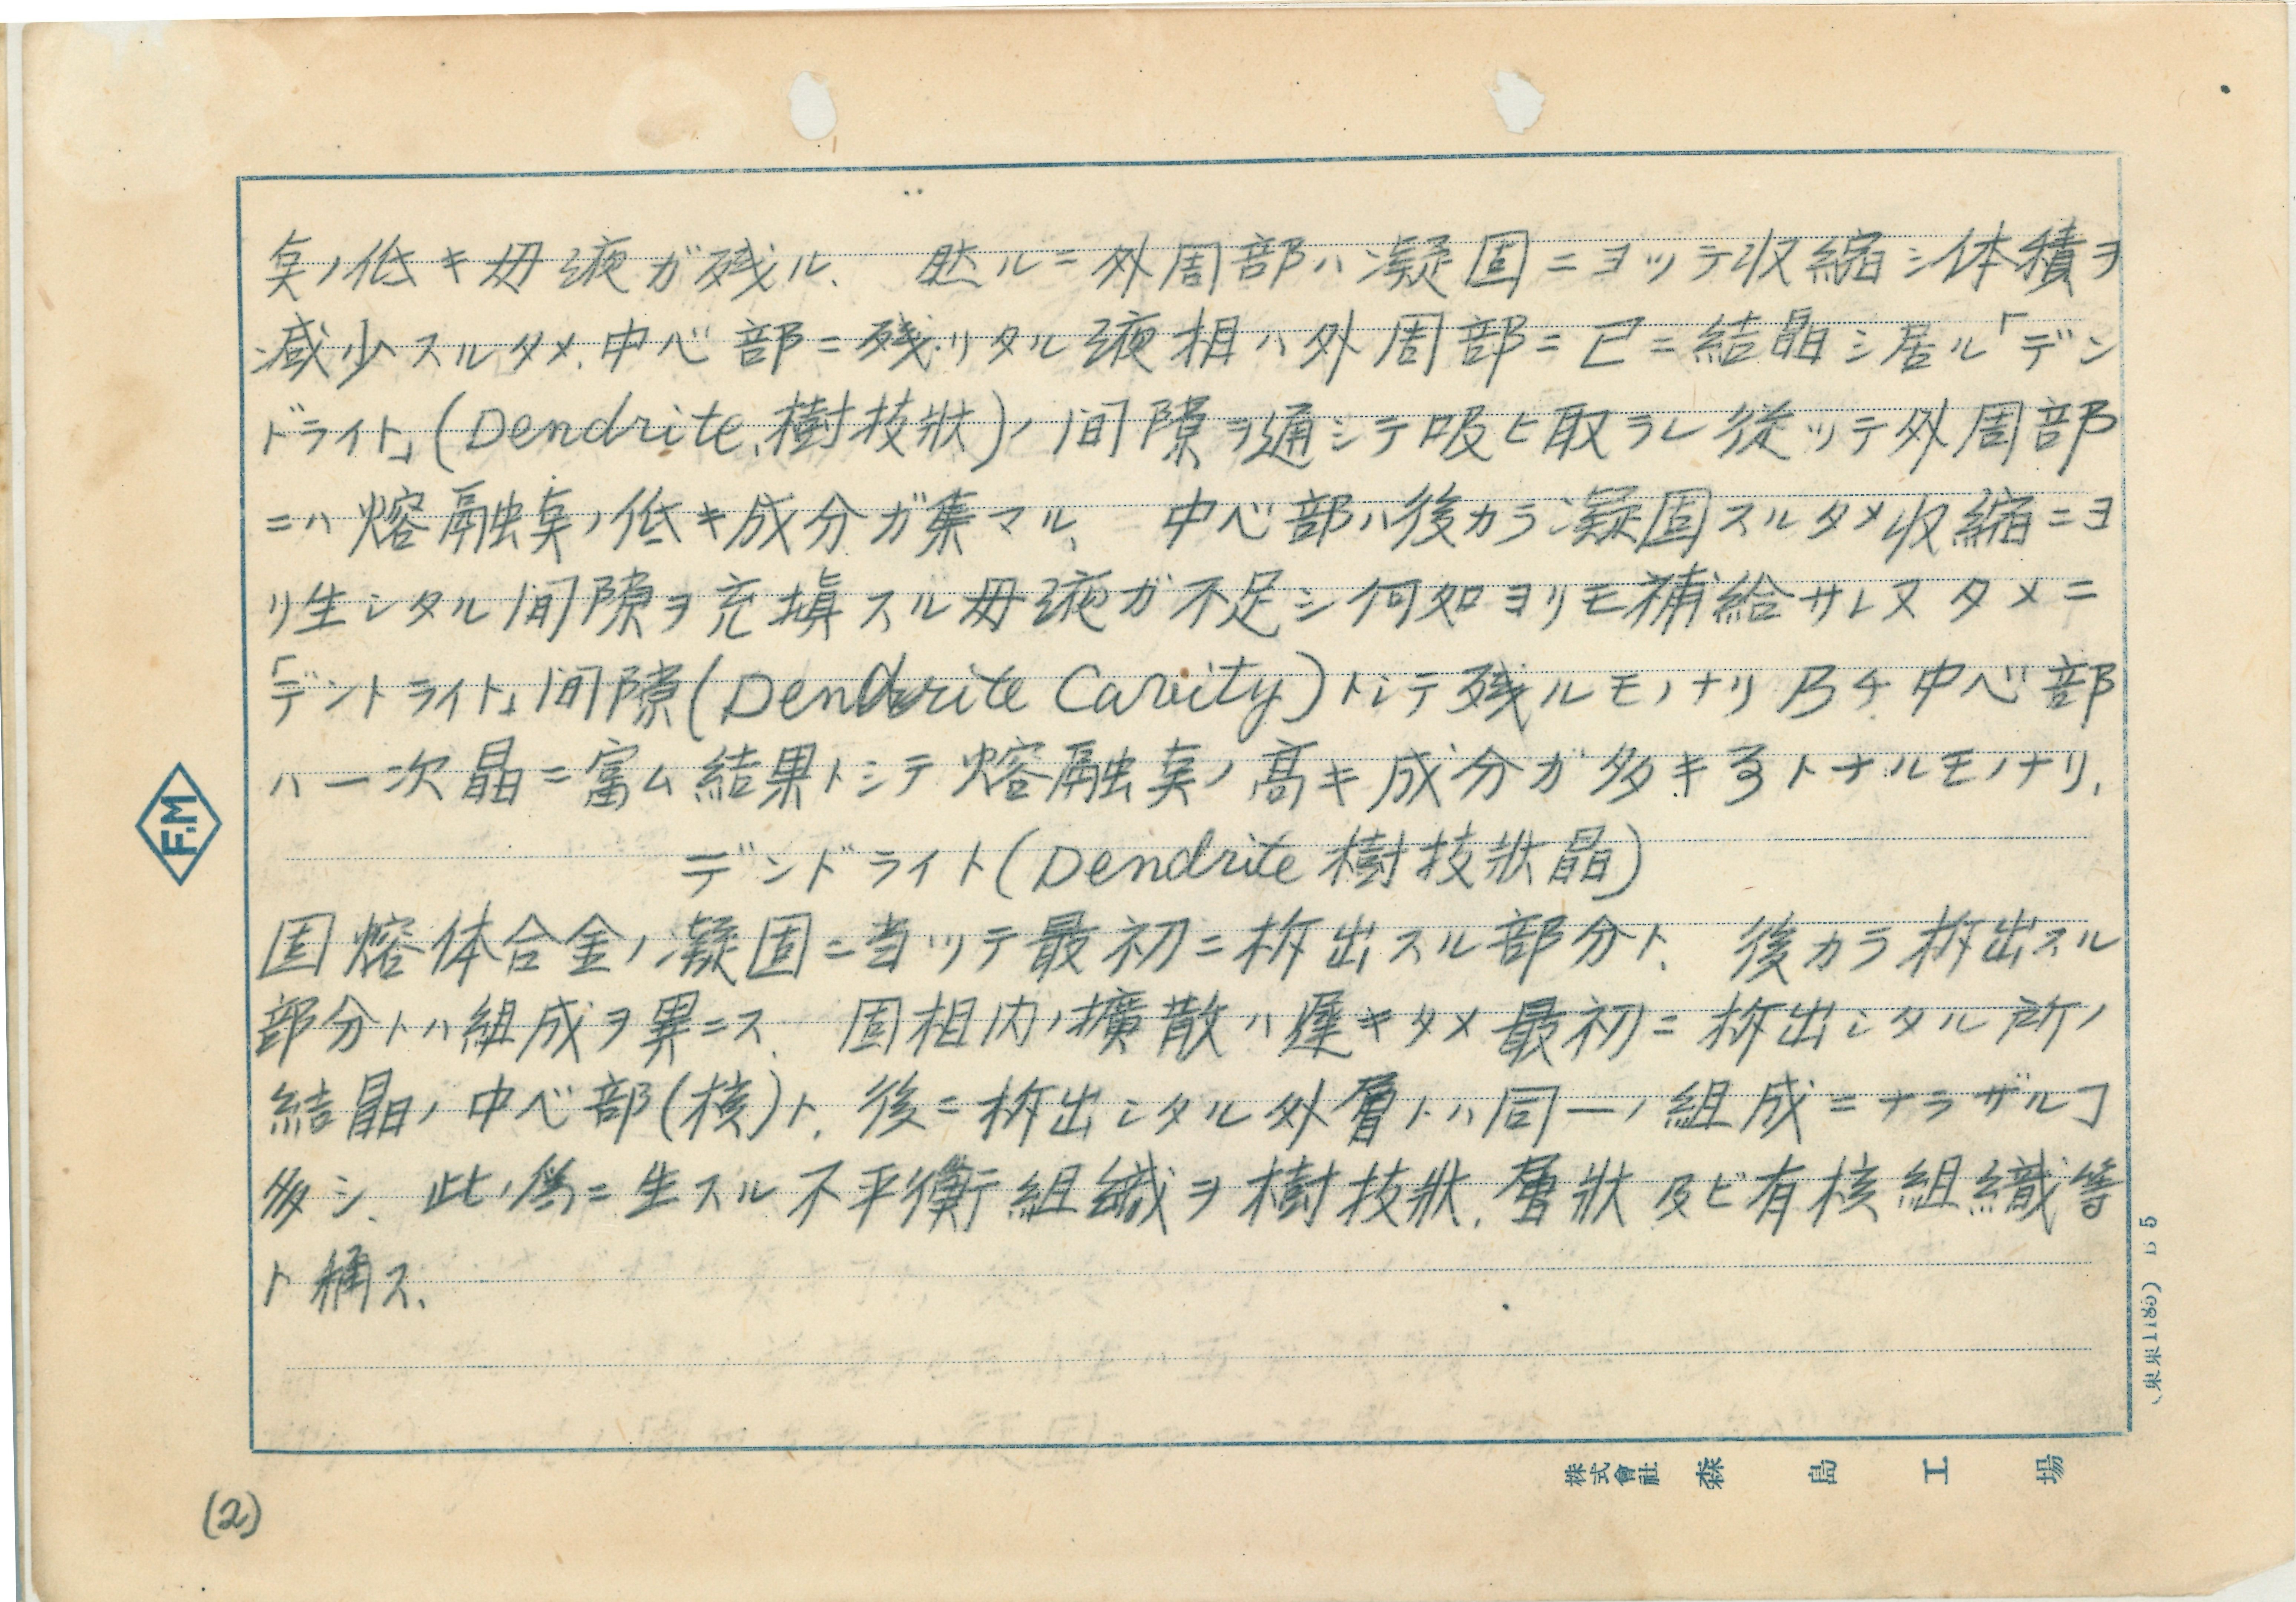 点ノ低キ母液ガ残ル、 然ルニ外周部ハ凝固ニヨッテ収縮シ体積ヲ
減少スルタメ、中心部ニ残リタル液相ハ外周部ニ已ニ結晶シ居ル「デン
ドライト」(Dendrite、樹枝狀)ノ間隙ヲ通シテ吸ヒ取ラレ従ッテ外周部
ニハ熔融点ノ低キ成分ガ集マル、 中心部ハ後カラ凝固スルタメ収縮ニヨ
リ生シタル間隙ヲ充塡スル母液ガ不足シ何如ヨリモ補給サレヌタメニ
「デントライト」間隙(Dendrite Cavity)トシテ残ルモノナリ乃チ中心部
ハ一次晶ニ富ム結果トシテ熔融点ノ高キ成分ガ多キヿトナルモノナリ、
デンドライト(Dendrite 樹枝狀晶)
固熔体合金ノ凝固ニ当ッテ最初ニ析出スル部分ト、後カラ析出スル
部分トハ組成ヲ異ニス、 固相内ノ擴散ハ遅キタメ最初ニ析出シタル所ノ
結晶ノ中心部(核)ト、後ニ析出シタル外層トハ同一ノ組成ニナラザルヿ
多シ、此ノ為ニ生スル不平衡組織ヲ樹枝狀、層狀及ビ有核組織等
ト称ス、
(2)
F.M
株式會社 森島工場